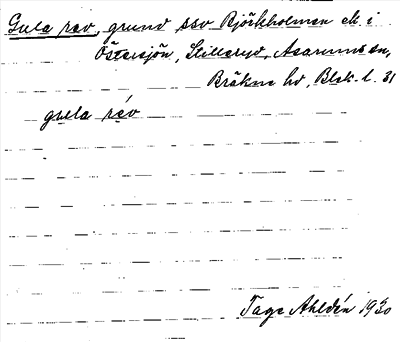 Gula rev, grund ssv Björkholmen ek i
Östersjön, Stilleryd, Asarums sn,
Bräkne hd, Blek. l. 31
gula rév
Tage Ahldén 1930